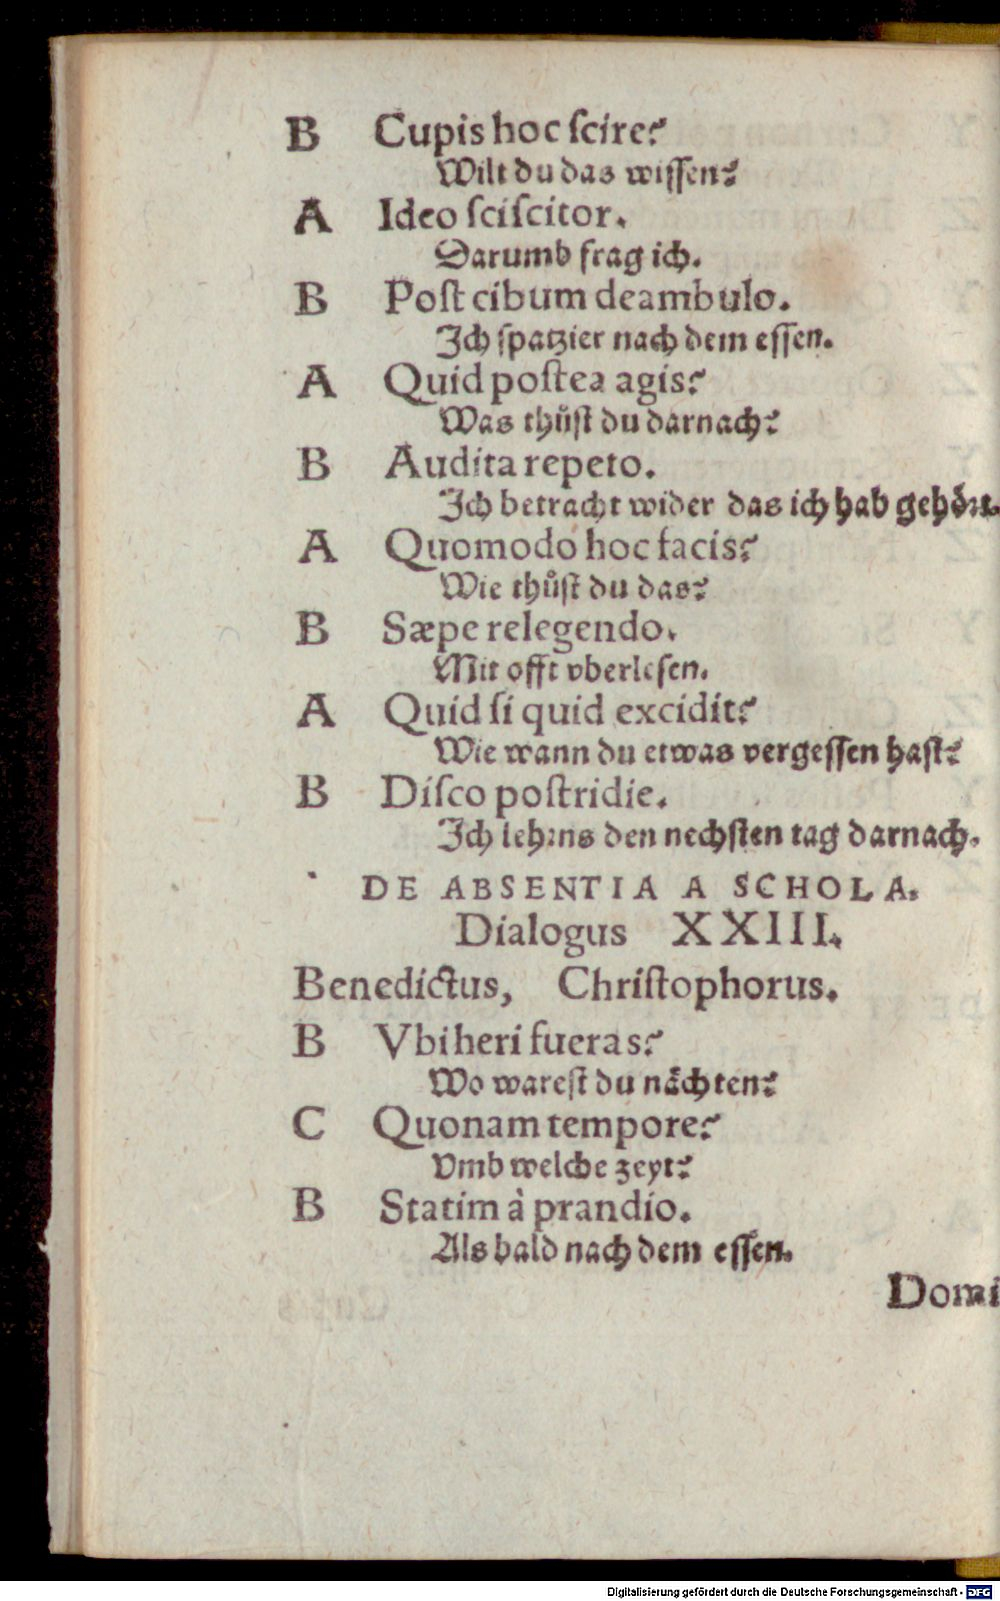 B Cupis hoc ſcire?
Wilt du das wiſſen?
A Ideo ſciſcitor.
Darumb frag ich.
B Poſt cibum deambulo.
Ich ſpatzier nach dem eſſen.
A Quid poſtea agis?
Was thůſt du darnach?
B Audita repeto.
Ich betracht wider das ich hab gehört.
A Quomodo hoc facis?
Wie thůſt du das?
B Sæpe relegendo.
Mit offt vberleſen.
A Quid ſi quid excidit?
Wie wann du etwas vergeſſen haſt?
B Diſco poſtridie.
Ich lehrns den nechſten tag darnach.
DE ABSENTIA A SCHOLA.
Dialogus XXIII.
Benedictus, Chriſtophorus.
B Vbi heri fueras?
Wo wareſt du nächten?
C Quonam tempore?
Vmb welche zeyt?
B Statim à prandio.
Als bald nach dem eſſen.
Domi
Digitalisierung gefördert durch die Deutsche Forschungsgemeinschaft - DFG